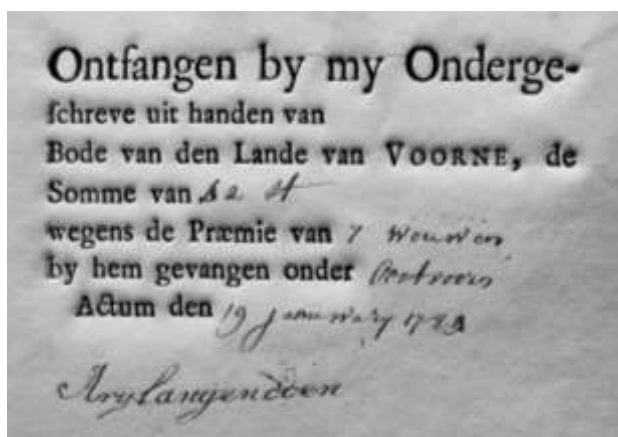 Ontfangen by my Onderge-
ſchreve uit handen van
Bode van den Lande van VOORNE, de
Somme van 42 st
wegens de Præmie van 7 Wouwen
by hem gevangen onder
Actum den 19 January
Arylangendoen